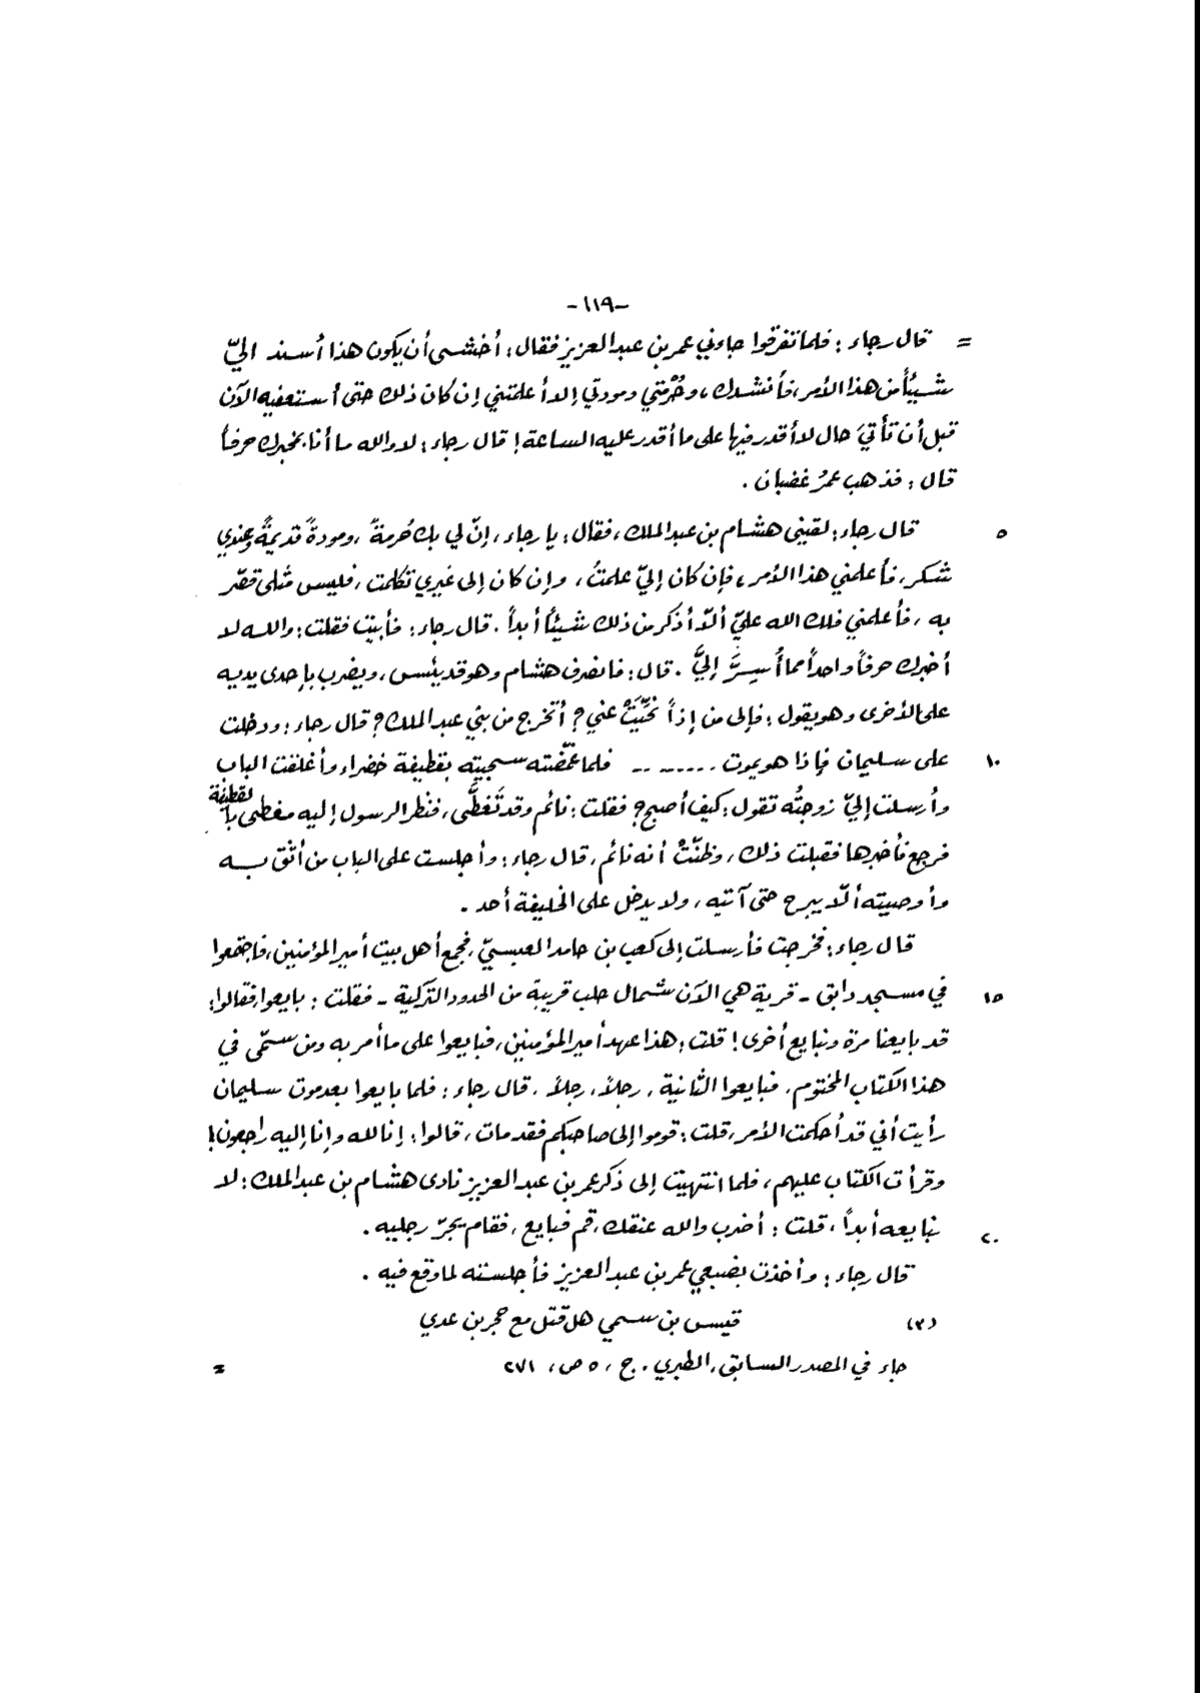 -١١٩-
= قال رجاء : فلما تفرّقوا جاءني عمر بن عبد العزيز فقال : أخشى أن يكون هذا أسند اليّ
شيئاً من هذا الأمر، فأنشدك ، وحُرْمتي ومودتي إلا أعلمتني إن كان ذلك حتى أستعفيه الآن
قبل أن تأتيَ حال لا أقدر فيها على ما أقدر عليه الساعة ! قال رجاء : لا والله ما أنا بمخبرك حرفاً
قال : فذهب عمرُ غضبان .
٥ قال رجاء : لقيني هشام بن عبد الملك ، فقال : يا رجاء ، إنّ لي بك حُرمةً ، ومودةً قديمةً وعندي
شكر ، فأعلمني هذا الأمر ، فإن كان إليّ علمتُ ، وإن كان إلى غيري تكلمت ، فليس مثلي قصّر
به ، فأعلمني فلك الله عليّ ألاّ أذكر من ذلك شيئاً أبداً . قال رجاء : فأبيت فقلت : والله لا
أخبرك حرفاً واحداً مما أُسِرَّ إليَّ . قال : فانصرف هشام وهو قد يئس ، ويضرب بإحدى يديه
على الأخرى وهو يقول : فإلى من إذاً نُحِّيَتْ عني ؟ أتخرج من بني عبد الملك ؟ قال رجاء : ودخلت
١٠ على سليمان فإذا هو يموت ........ فلما غمّضته سجيته بقطيفة خضراء وأغلقت الباب
وأرسلت إليّ زوجتُه تقول : كيف أصبح ؟ فقلت : نائم وقد تَغطَّى ، فنظر الرسول إليه مغطى بالقطيفة
فرجع فأخبرها فقبلت ذلك ، وظنّتْ أنه نائم ، قال رجاء : وأجلست على الباب من أثق به
وأوصيته ألاّ يبرح حتى آتيه ، ولا يدخل على الخليفة أحد .
قال رجاء : فخرجت فأرسلت إلى كعب بن حامد العبسيّ ، فجمع أهل بيت أمير المؤمنين ، فاجتمعوا
١٥ في مسجد دابق - قرية هي الآن شمال حلب قريبة من الحدود التركية - فقلت : بايعوا ، فقالوا :
قد بايعنا مرة ونبايع أخرى ! قلت : هذا عهد أمير المؤمنين ، فبايعوا على ما أمر به ومن سمّى في
هذا الكتاب المختوم . فبايعوا الثانية ، رجلاً ، رجلاً . قال رجاء : فلما بايعوا بعد موت سليمان
رأيت أني قد أحكمت الأمر ، قلت : قوموا إلى صاحبكم فقد مات ، قالوا : إنا لله وإنا إليه راجعون !
وقرأت الكتاب عليهم ، فلما انتهيت إلى ذكر عمر بن عبد العزيز نادى هشام بن عبد الملك : لا
٢٠ نبايعه أبداً ، قلت : أضرب والله عنقك ، قم فبايع ، فقام يجرّ رجليه .
قال رجاء : وأخذت بضبعي عمر بن عبد العزيز فأجلسته لما وقع فيه .
(٣) قيس بن سمي هل قتل مع حجر بن عدي
جاء في المصدر السابق ، الطبري . ج ، ٥ ص ، ٢٧١ =